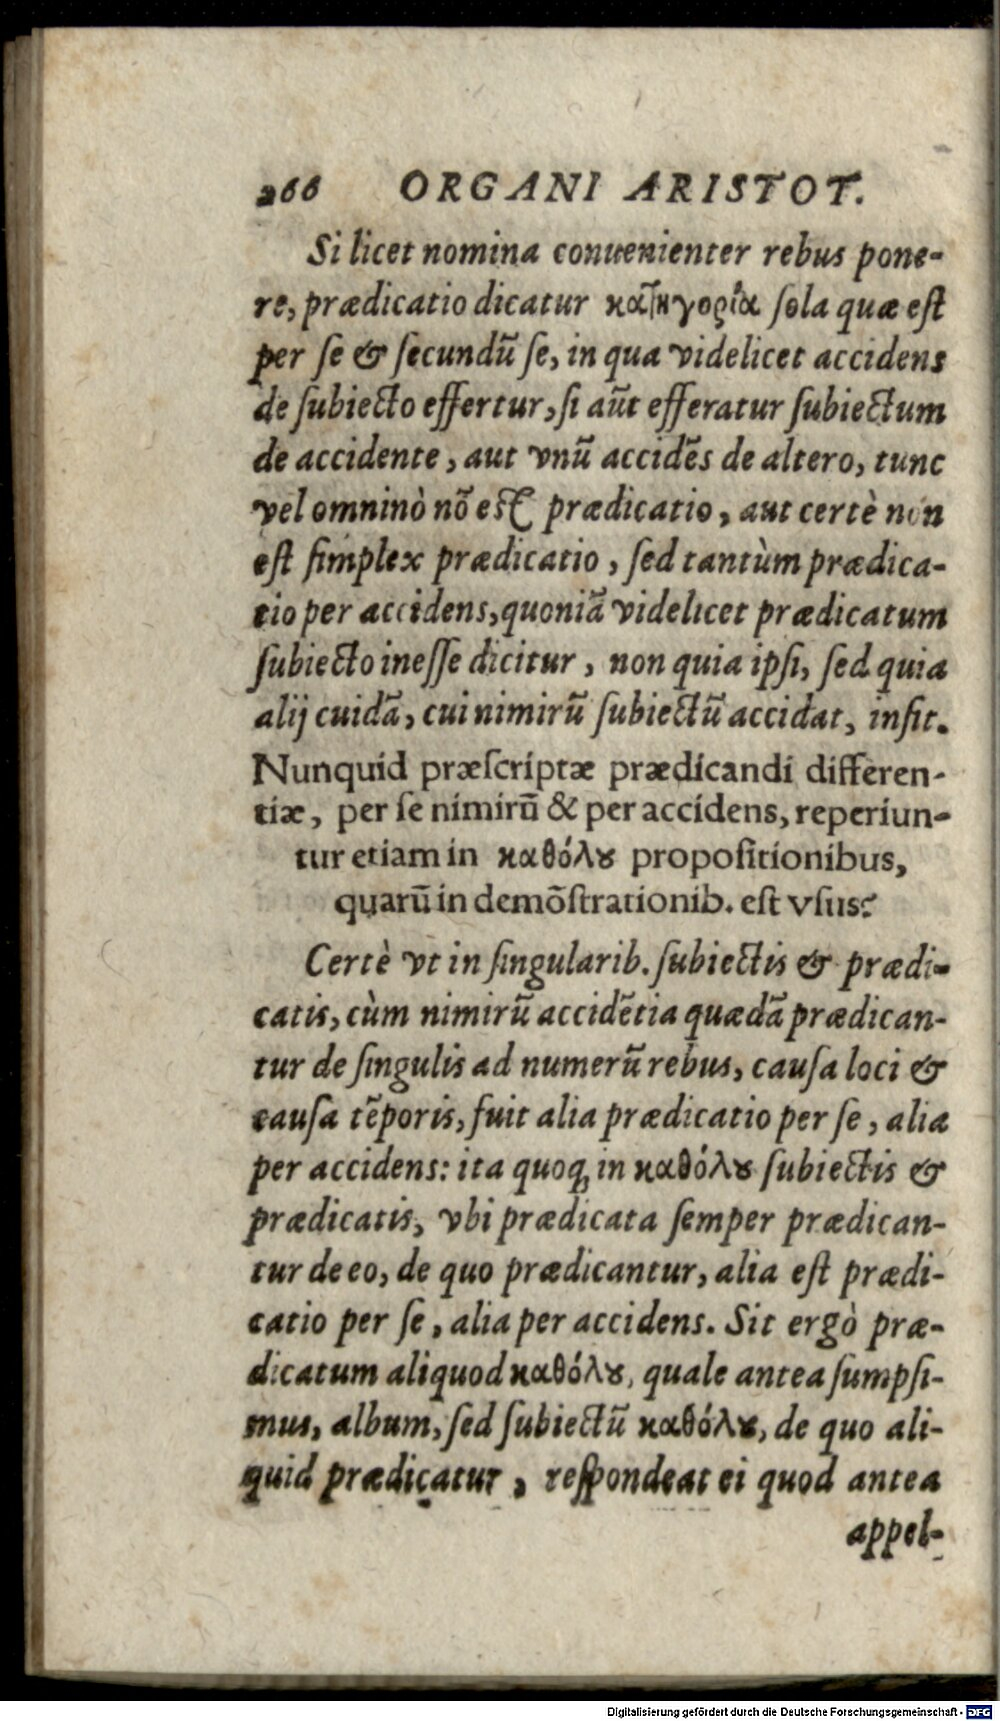 266 ORGANI ARISTOT.
Si licet nomina conuenienter rebus pone-
re, prædicatio dicatur κατηγορία sola quæ est
per se & secundū se, in qua videlicet accidens
de subiecto effertur, si aūt efferatur subiectum
de accidente, aut vnū accidēs de altero, tunc
vel omninò nō est prædicatio, aut certè non
est simplex prædicatio, sed tantùm prædica-
tio per accidens, quoniā videlicet prædicatum
subiecto inesse dicitur, non quia ipsi, sed quia
alij cuidā, cui nimirū subiectū accidat, insit.
Nunquid præscriptæ prædicandi differen-
tiæ, per se nimirū & per accidens, reperiun-
tur etiam in καθόλȣ propositionibus,
quarū in demōstrationib. est vsus?
Certè vt in singularib. subiectis & prædi-
catis, cùm nimirū accidētia quædā prædican-
tur de singulis ad numerū rebus, causa loci &
causa tēporis, fuit alia prædicatio per se, alia
per accidens: ita quoq; in καθόλȣ subiectis &
prædicatis, vbi prædicata semper prædican-
tur de eo, de quo prædicantur, alia est prædi-
catio per se, alia per accidens. Sit ergò præ-
dicatum aliquod καθόλȣ, quale antea sumpsi-
mus, album, sed subiectū καθόλȣ, de quo ali-
quid prædicatur, respondeat ei quod antea
appel-
Digitalisierung gefördert durch die Deutsche Forschungsgemeinschaft - DFG